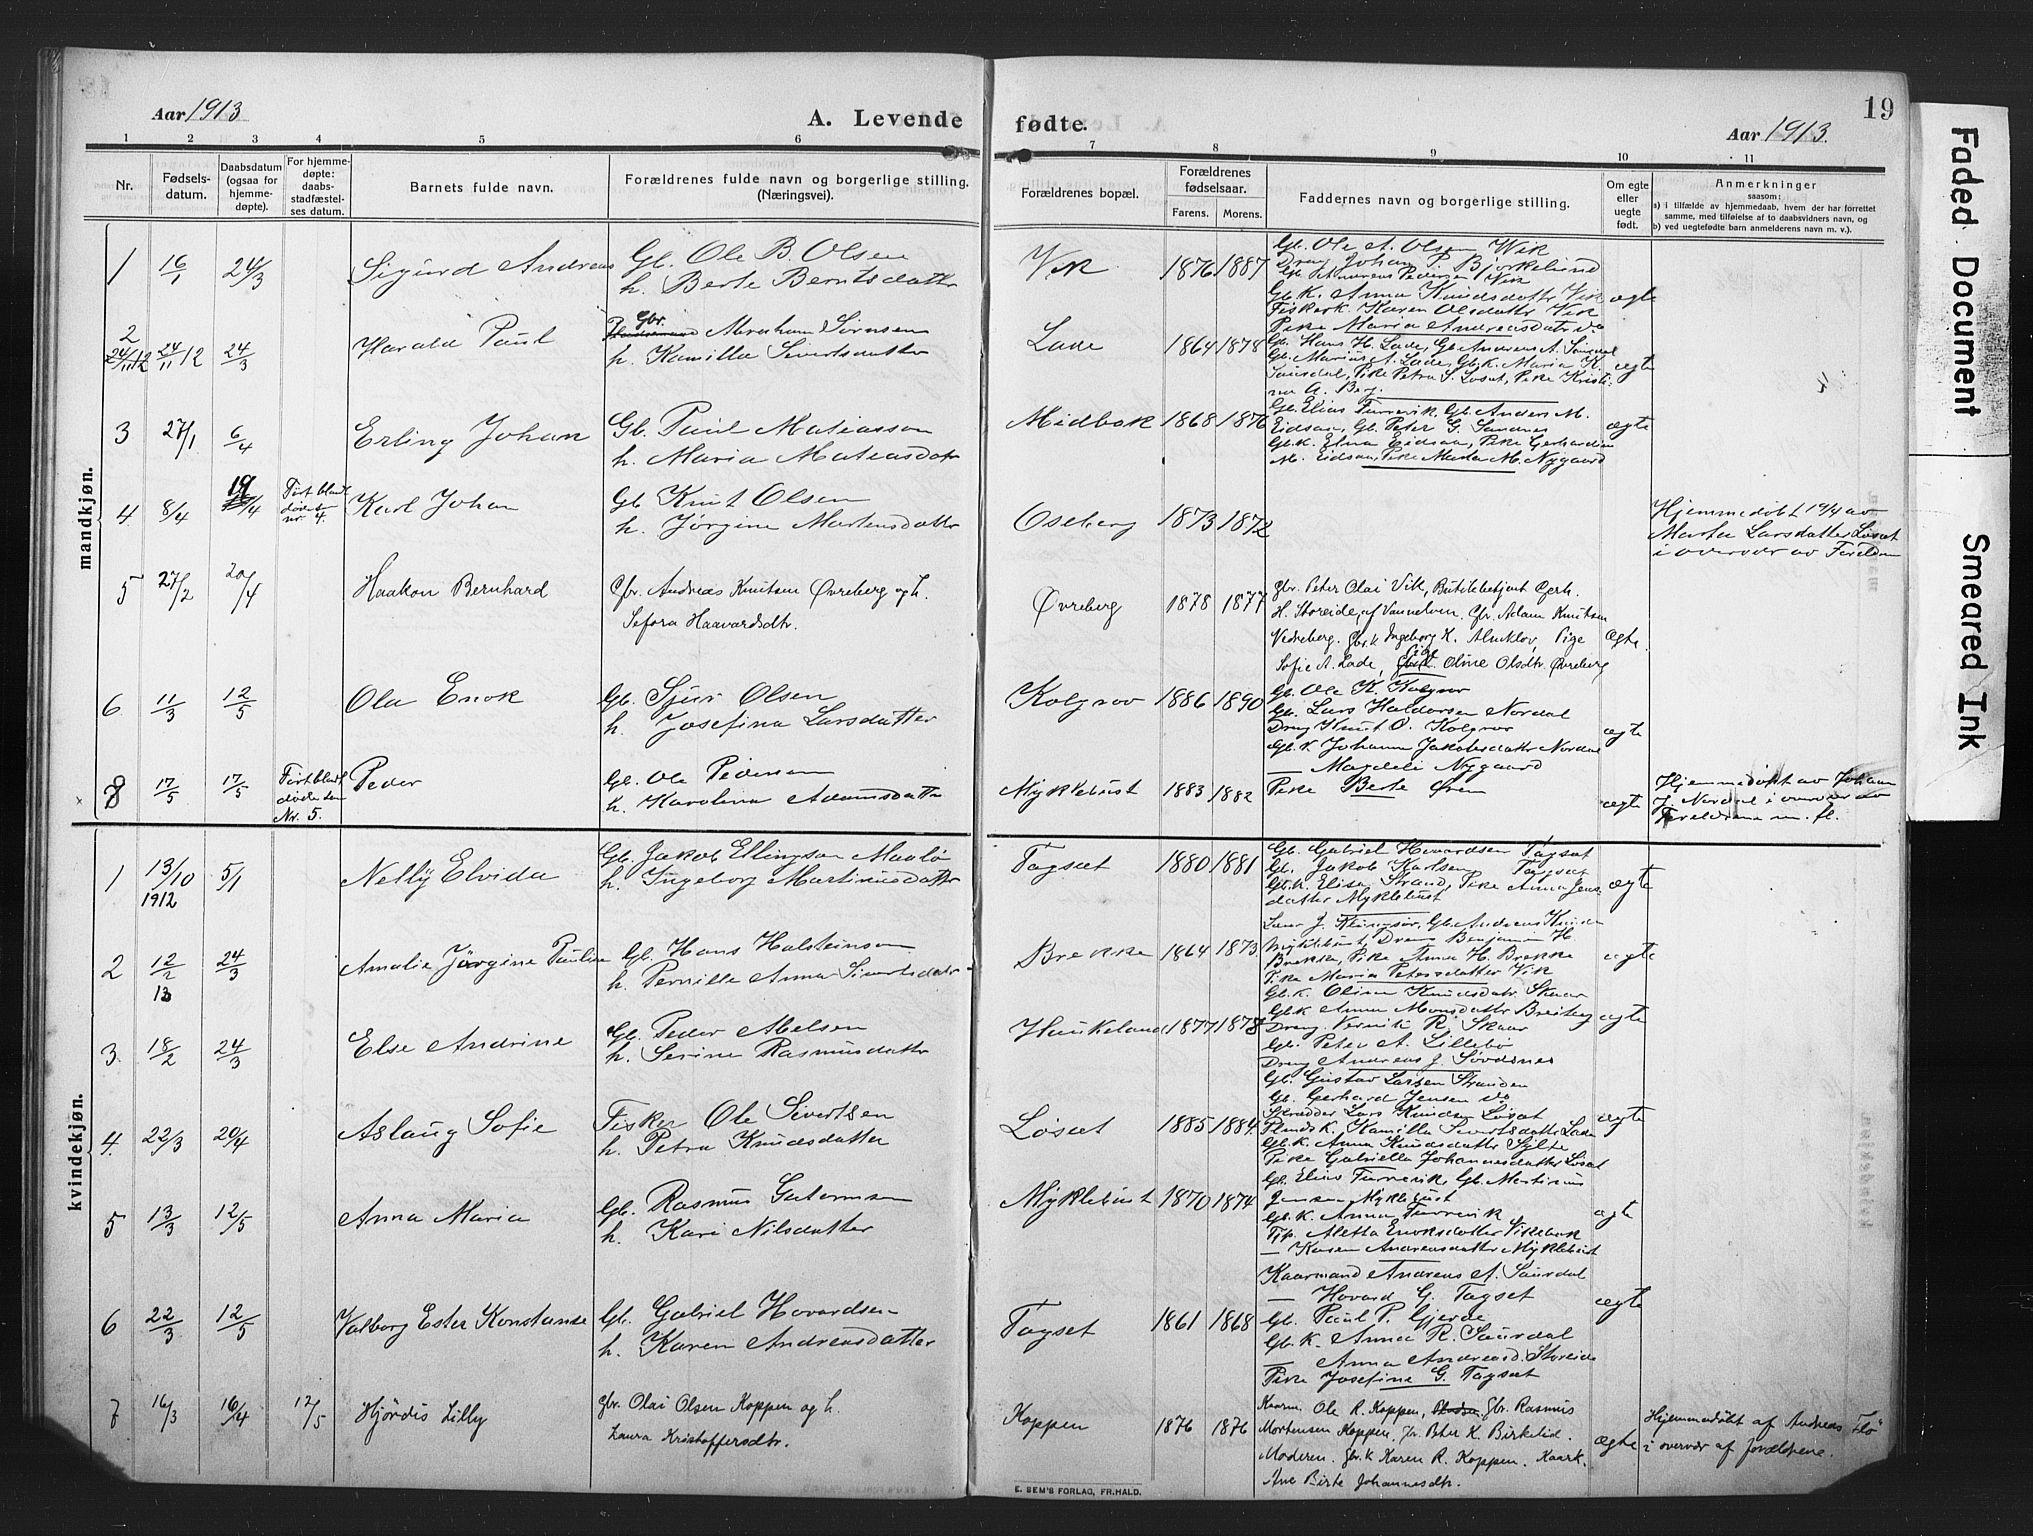 19
Aar 1913
A. Levende fødte.
Aar 1913.
1 2 3 4 5 6 7 8 9 10 11
Nr.
Fødselsdatum.
Daabsdatum (ogsaa for hjemmedøpte).
For hjemmedøpte: daabsstadfæstelses datum.
Barnets fulde navn.
Forældrenes fulde navn og borgerlige stilling. (Næringsvei).
Forældrenes bopæl.
Forældrenes fødselsaar.
Farens. Morens.
Faddernes navn og borgerlige stilling.
Om egte eller uegte født.
Anmerkninger
saasom:
a) i tilfælde av hjemmedaab, hvem der har forrettet samme, med tilføielse af to daabsvidners navn, og
b) ved uegtefødte barn anmelderens navn m. v.).
mandkjøn.
1 16/1 24/3 Sigurd Andreas Gb. Ole B. Olsen
h. Berte Berntsdatter
Vik 1876 1887
Gb. Ole A. Olsen Vik
Drng Johan P. Bjørkelund
Gb. Andreas Pedersen Vik
Gb.k. Anna Knudsdatter Vik
Fiskerk. Karen Olsdatter Vik
Pike Maria Andreasdatr do
ægte
2 24/11 12 24/11 12 24/3 Harald Paul Gbr. Abraham Sørnsen
h. Kamilla Sivertsdatter
Lade 1864 1878
Gb. Hans H. Lade, Gb Andreas A. Saurdal
Gb. Marius A. Lade, Gb.k. Maria K.
Saurdal, Pike Petra S. Løset, Pike Kristi-
na A. Berg.
ægte
3 27/1 6/4 Erling Johan Gb. Paul Matiasson
h. Maria Matiasdatr
Midbøk 1868 1876
Gb. Elias Furrevik, Gb. Anders M.
Eidsaa, Gb. Peter G. Sandnes
Gb.k. Elna Eidsaa, Pike Gerhardine
M. Eidsaa, Pike Marta M. Nygaard
ægte
4 8/4 19/4 Ført bladt døde som nr. 4. Karl Johan Gb Knut Olsen
h. Jørgine Martensdatter
Oseberg 1873 1872
Hjemmedøbt 19/4 av
Marta Larsdatter Løset
i overvær av Foreldrene
5 27/2 20/4 Haakon Bernhard Gbr. Andreas Knutsen Øvreberg og h.
Sefora Haavardsdtr.
Øvreberg 1878 1877
Gbr. Peter Olai Vik, Butikbetjent Gerh.
H. Storeide, af Vannelven. Gbr. Adam Knutsen
Nedreberg. Gbr.k Ingeborg K. Almklov, Pige
Sofie A. Lade, Pige Oline Olsdtr. Øvreberg
ægte.
6 11/3 12/5 Ola Enok Gb. Sjur Olsen
h. Josefina Larsdatter
Kolgrov 1886 1890
Gb. Ole K. Kolgrov
Gb. Lars Haldorsen Nordal
Drng Knut O. Kolgrov
Gb.k. Johanna Jakobsdatter Nordal
— Magdeli Nygaard
ægte
7 17/5 17/5 Ført bladt døde som Nr. 5. Peder Gb. Ole Pedersen
h. Karolina Adamsdatter
Myklebust 1883 1882
Pike Berte Øren
ægte
Hjemmedøbt av Johan
J. Nordal i overvær av
Foreldrene m. fl.
kvindekjøn.
1 13/10 1912 5/1 Nelly Elvida Gb. Jakob Ellingson Maaløi
h. Ingeborg Martinusdatter
Tagset 1880 1881
Gb. Gabriel Hovardsen Tagset
Gb. Jakob Karlsen Tagset
Gb.k. Elisa Strand, Pike Anna Jens-
datter Myklebust
ægte
2 12/2 13 24/3 Amalie Jørgine Pauline Gb. Hans Halsteinson
h. Pernille Anna Sivertsdatr
Brekke 1864 1873
Lær J. Kleingsør, Gb. Andreas Knuds.
Myklebust, Drng Benjamin H
Brekke, Pike Anna H. Brekke
Pike Maria Petersdatter Vik
ægte
3 18/2 24/3 Else Andrine Gb. Peder Abelsen
h. Serine Rasmusdatter
Haukeland 1877 1878
Gb.k. Olina Knudsdatr. Skaar
Gb.k Anna Monsdatter Breiteig
Drng. Vernik R. Skaar
Gb. Peter A. Lillebø
Drng Andreas J. Sørdsnes
ægte
4. 22/3 20/4 Aslaug Sofie Fisker Ole Sivertsen
h. Petra Knudsdatter
Løset 1885 1884
Gb. Gustav Larsen Stranden
Gb. Gerhard Jensen do
Skrædder Lars Knudsen Løset
Plads k. Kamilla Sivertsdatter Lade
Gb.k. Anna Knudsdatter Sylte
Pike Gabriella Johannesdatter Løset
ægte
5 13/3 12/5 Anna Maria Gb. Rasmus Guttormsen
h. Kari Nilsdatter
Myklebust 1870 1874
Gb. Elias Furrevik, Gb. Martinus
Jensen Myklebust
Gb.k. Anna Furrevik
Tjp. Aletta Enoksdatter Vikebøk
— Karen Andreasdatter Myklebust
ægte
6 22/3 12/5 Valborg Ester Konstanse Gb. Gabriel Hovardsen
h. Karen Andreasdatter
Tagset 1861 1868
Kaarmand Andreas A. Saurdal
— Hovard G. Tagset
Gb. Paul P. Gjerde
Gb.k. Anna R. Saurdal
— Anna Andreasd. Storeide
Pike Josefine G. Tagset
ægte
7 16/3 16/4 12/5 Hjørdis Lilly Gbr. Olai Olsen Koppen og h.
Laura Kristoffersdtr.
Koppen 1876 1876
Kaarm. Ole R. Koppen, Gbr. Rasmus
Mortensen Koppen, Gbr Peter K. Birkelid.
Moderen. Gbr.k Karen R. Koppen. Kaark.
Ane Birte Johannesdtr.
ægte
Hjemmedøbt af Andreas Flo
i overvær af forældrene.
E. SEM'S FORLAG, FR.HALD.
Faded Document
Smeared Ink